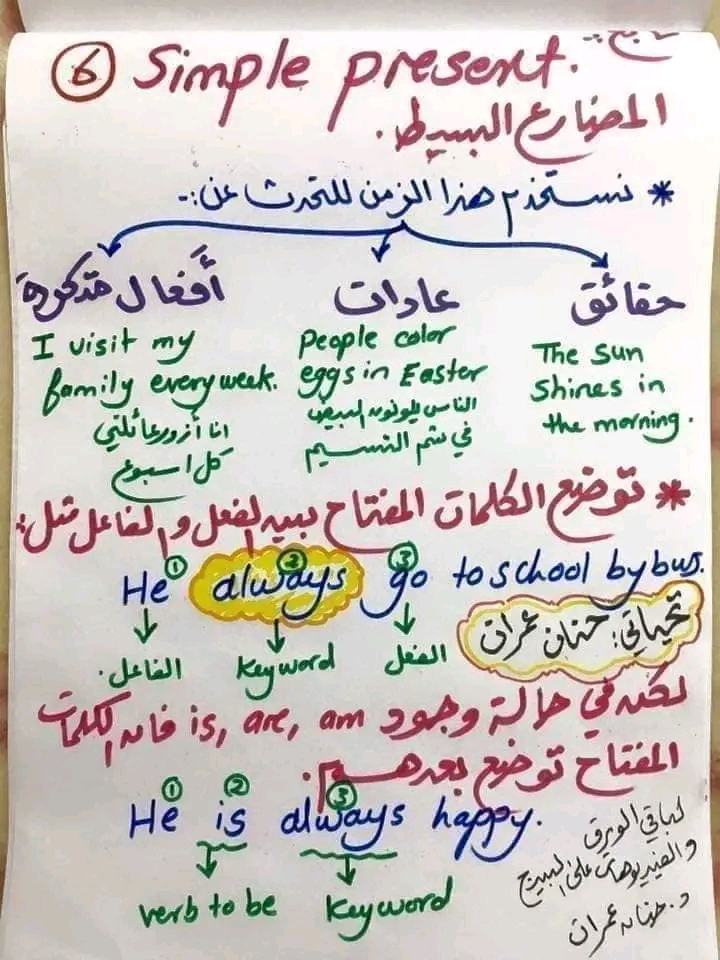 تابع:-
⑥ Simple present.
المضارع البسيط.
* نستخدم هذا الزمن للتحدث عن:-
حقائق
The sun
shines in
the morning.
عادات
People color
eggs in Easter
الناس يلونون البيض
في شم النسيم
أفعال متكررة
I visit my
family every week.
انا أزور عائلتي
كل اسبوع
* توضع الكلمات المفتاح بين الفعل والفاعل مثل:
① ② ③
He always go to school by bus.
الفاعل. Keyword الفعل
تحياتي: حنان عمران
لكن في حالة وجود is, are, am فان الكلمات
المفتاح توضع بعدهم.
① ② ③
He is always happy.
verb to be Keyword
لباقي الورق
والفيديوهات على البيج
د. حنان عمران